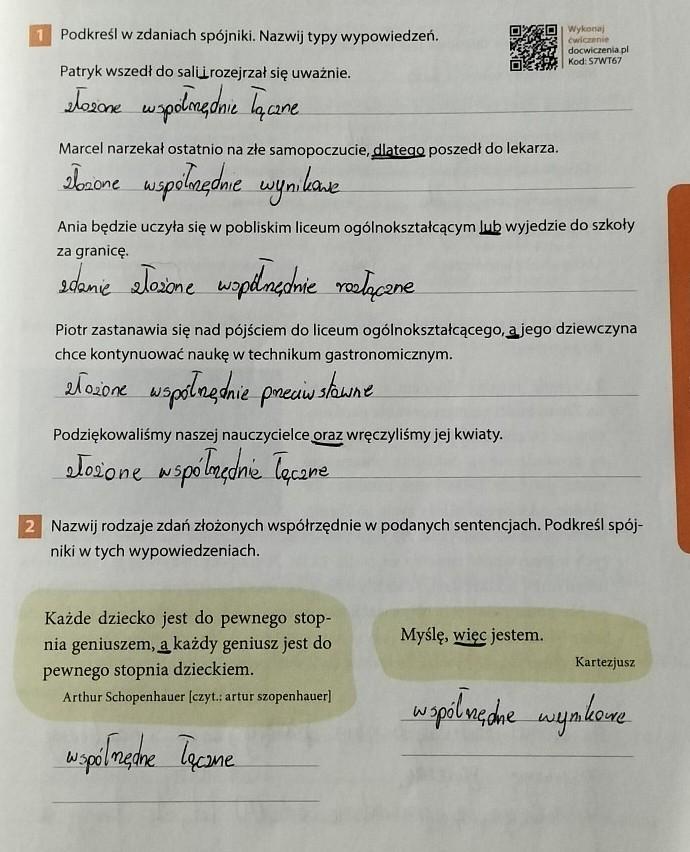 1 Podkreśl w zdaniach spójniki. Nazwij typy wypowiedzeń.
Wykonaj
ćwiczenie
docwiczenia.pl
Kod: S7WT67
Patryk wszedł do sali i rozejrzał się uważnie.
złożone współrzędnie łączne
Marcel narzekał ostatnio na złe samopoczucie, dlatego poszedł do lekarza.
złożone współrzędnie wynikowe
Ania będzie uczyła się w pobliskim liceum ogólnokształcącym lub wyjedzie do szkoły
za granicę.
zdanie złożone współrzędnie rozłączne
Piotr zastanawia się nad pójściem do liceum ogólnokształcącego, a jego dziewczyna
chce kontynuować naukę w technikum gastronomicznym.
złożone współrzędnie przeciwstawne
Podziękowaliśmy naszej nauczycielce oraz wręczyliśmy jej kwiaty.
złożone współrzędnie łączne
2 Nazwij rodzaje zdań złożonych współrzędnie w podanych sentencjach. Podkreśl spój-
niki w tych wypowiedzeniach.
Każde dziecko jest do pewnego stop-
nia geniuszem, a każdy geniusz jest do
pewnego stopnia dzieckiem.
Arthur Schopenhauer [czyt.: artur szopenhauer]
współrzędne łączne
Myślę, więc jestem.
Kartezjusz
współrzędne wynikowe